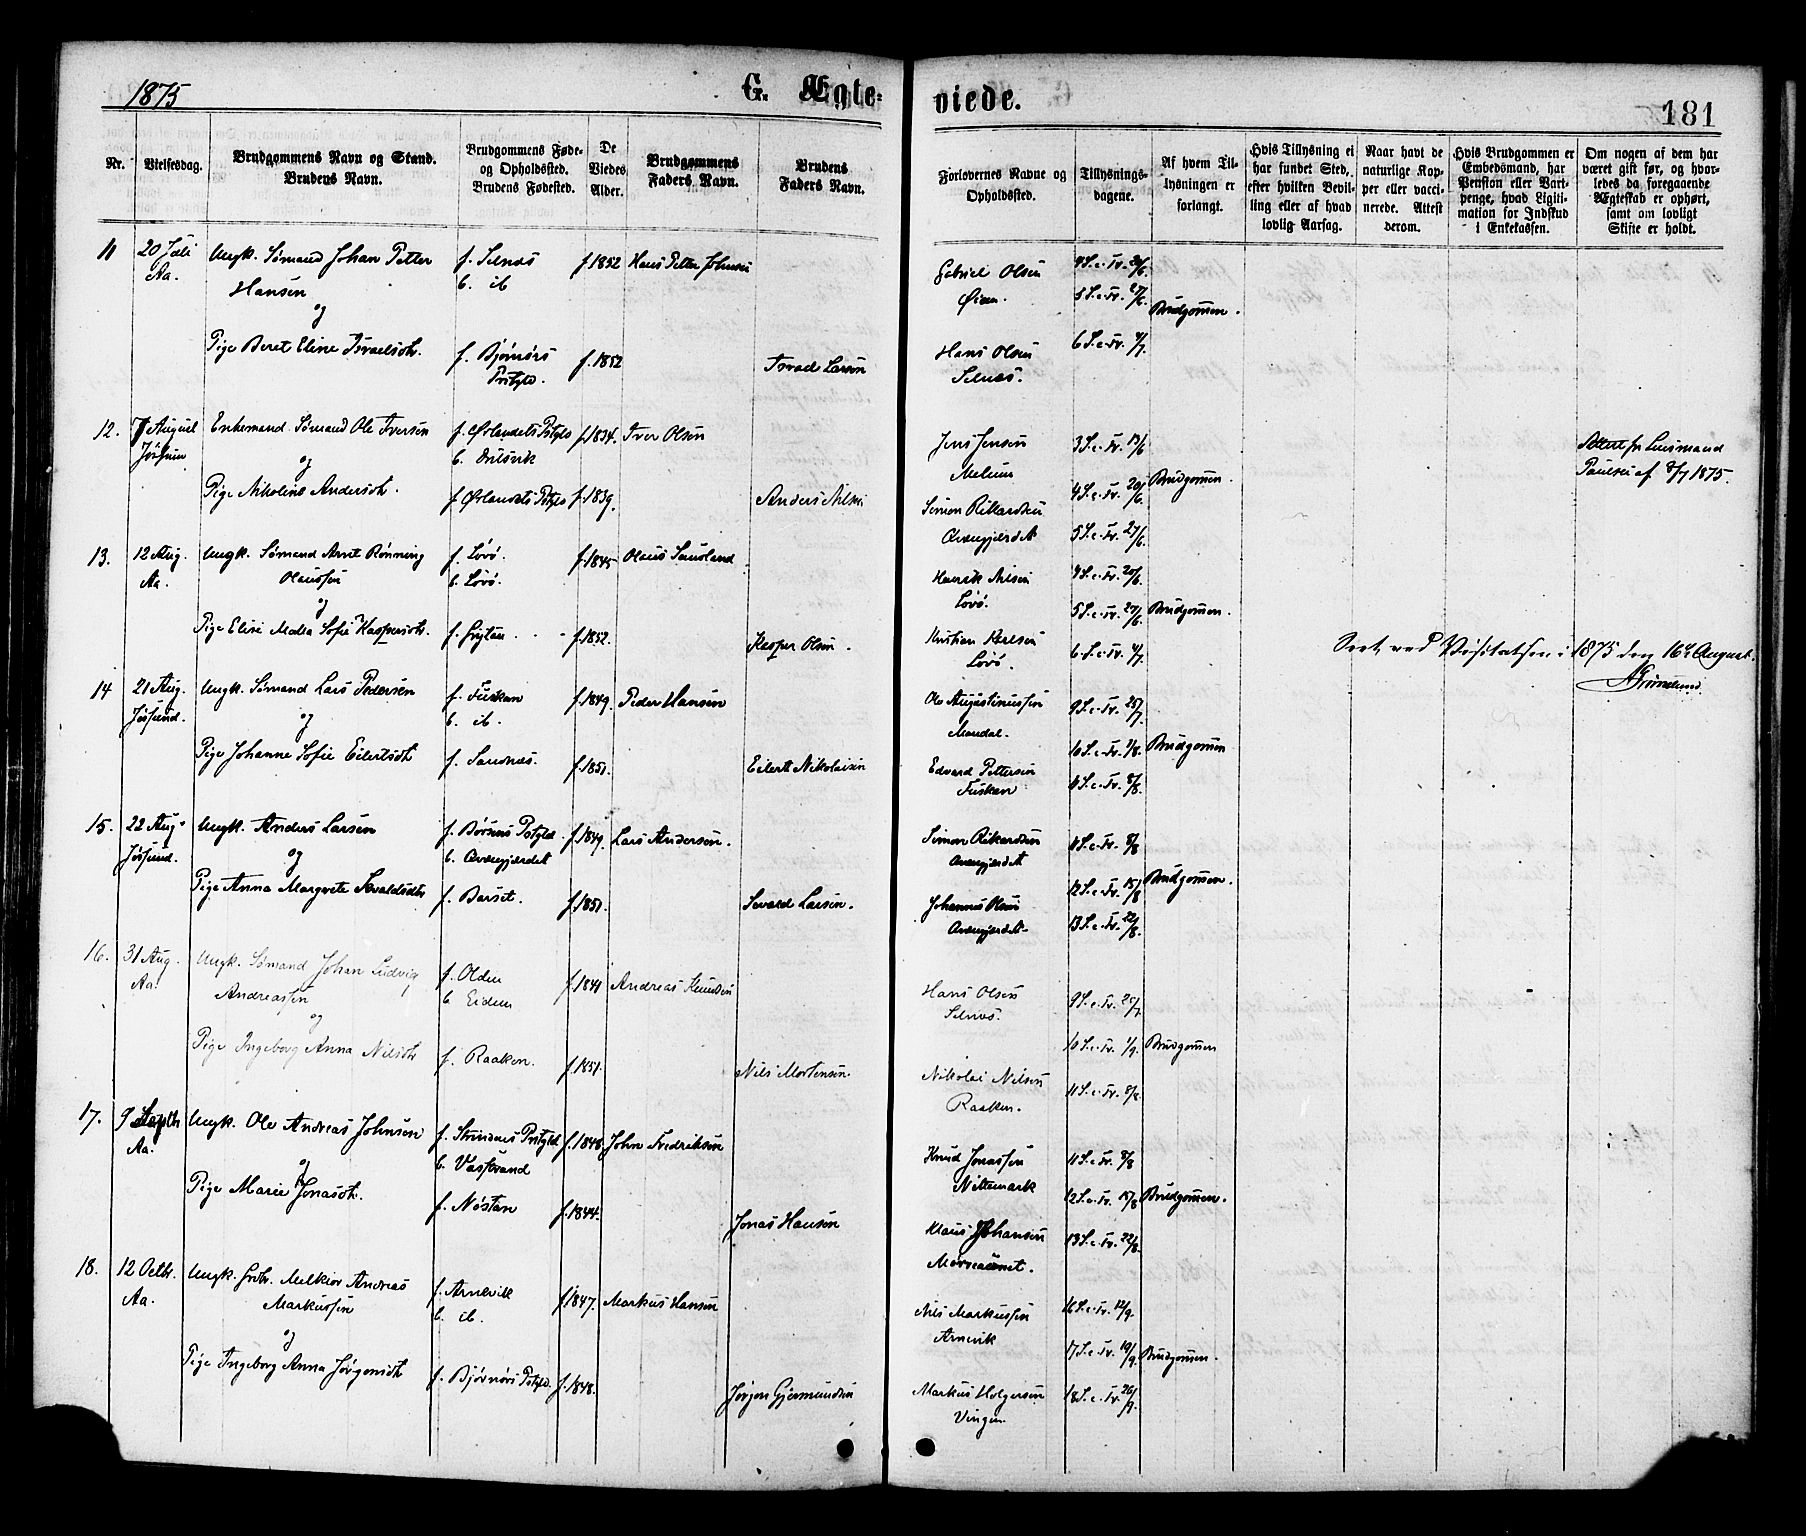 1875
G. Ægte-
viede.
181
Nr.
Vielsesdag.
Brudgommens Navn og Stand.
Brudens Navn.
Brudgommens Føde-
og Opholdssted.
Brudens Fødested.
De
Viedes
Alder.
Brudgommens
Faders Navn.
Brudens
Faders Navn.
Forlovernes Navne og
Opholdssted.
Tillysnings-
dagene.
Af hvem Til-
lysningen er
forlangt.
Hvis Tillysning ei
har fundet Sted,
efter hvilken Bevil-
ling eller af hvad
lovlig Aarsag.
Naar havt de
naturlige Kop-
per eller vacci-
nerede. Attest
derom.
Hvis Brudgommen er
Embedsmand, har
Pension eller Vart-
penge, hvad Ligiti-
mation for Indskud
i Enkekassen.
Om nogen af dem har
været gift før, og hvor-
ledes da foregaaende
Ægteskab er ophørt,
samt om lovligt
Skifte er holdt.
11 20 Juli Ungk. Sømand Johan Petter f. Selnæs f. 1852 Hans Petter Johnsen
Aa. Hansen b. ib
og
Pige Beret Eline Israelsdtr. f. Bjørnørs f. 1852 Israel Larsen
Prstgld.
Gabriel Olsen 4 S. e. Tr. 20/6
5 S. e. Tr. 27/6. Brudgommen.
Hans Olsen 6 S. e. Tr. 4/7.
Selnæs.
12. 7 August Enkemand Sømand Ole Iversen f. Ørlandets Pstgld f. 1834. Iver Olsen
Jøssund b.
og
Pige Nikoline Andersdtr. f. Ørlandets Pstgld f. 1839. Anders Nilsen
Jens Jensen 3 S. e. Tr. 13/6
Melum
4 S. e. Tr. 20/6. Brudgommen.
Simon Rikardsen
5 S. e. Tr. 27/6.
Attest fr Lensmand
Paulsen af 8/7 1875.
13. 12 Aug. Ungk. Sømand Arnt Rønning f. Lovø. f. 1845 Olaus
Aa. Olaussen b. Lovø.
og
Pige Elise Maria Sofie Kaspersdtr. f. f. 1852. Kasper Olsen.
Henrik Nilsen 4 S. e. Tr. 20/6.
Lovø. 5 S. e. Tr. 27/6 Brudgommen.
Kristian Karlsen 6 S. e. Tr. 4/7.
Lovø.
Seet ved Visitatsen i 1875 den 16de August.
AGrimelund.
14 21 Aug. Ungk. Sømand Lars Pedersen f. Fuskan f. 1849. Peder Hansen
Jøssund. og b. ib.
Pige Johanne Sofie Eilertsdtr f. Sandnæs. f. 1851. Eilert Nikolaisen
Ole Augustinussen 9 S. e. Tr. 25/7.
Mandal.
10 S. e. Tr. 1/8. Brudgommen
Edvard Pettersen
Fuskan 11 S. e. Tr. 8/8.
15. 22 Aug. Ungk. Anders Larsen f. Børsens Pstgld. f. 1849. Lars Andersen.
Jøssund. og b.
Pige Anna Margrete Sevaldsdtr f. Barset. f. 1851. Sevald Larsen.
Simon Rikardsen 11 S. e. Tr. 8/8
12 S. e. Tr. 15/8 Brudgommen.
Johannes Olsen 13 S. e. Tr. 22/8.
16. 31 Aug. Ungk. Sømand Johan Ludvig f. Olden f. 1841 Andreas Knudsen
Aa. Andreassen b. Eidem
og
Pige Ingeborg Anna Nilsdtr f. Raaken. f. 1851. Nils Mortensen.
Hans Olsen 9 S. e. Tr. 25/7
Selnæs.
10 S. e. Tr. Brudgommen
Nikolai Nilsen 11 S. e. Tr. 8/8
Raaken.
17. 9 Septbr Ungk. Ole Andreas Johnsen f. Strindens Prstgld f. 1848. John Fredriksen
Aa. og b. Vasstrand
Pige Marie Jonasdtr. f. Nøstan f. 1844. Jonas Hansen
Knud Jonassen 11 S. e. Tr. 8/8
Nittemark 12 S. e. Tr. 15/8 Brudgommen.
Klaus Johansen 13 S. e. Tr. 22/8.
18. 12 Octbr. Ungk. Melkior Andreas f. Arnevik f. 1847. Markus Hansen
Aa. Markussen b. ib.
og
Pige Ingeborg Anna Jørgensdtr f. Bjørnørs Pstgld. f. 1848. Jørgen Gjermundsen
Nils Markussen 16 S. e. Tr. 12/9.
Arnevik 17 S. e. Tr. 19/9. Brudgommen.
Markus Holgersen 18 S. e. Tr. 26/9.
Vingen